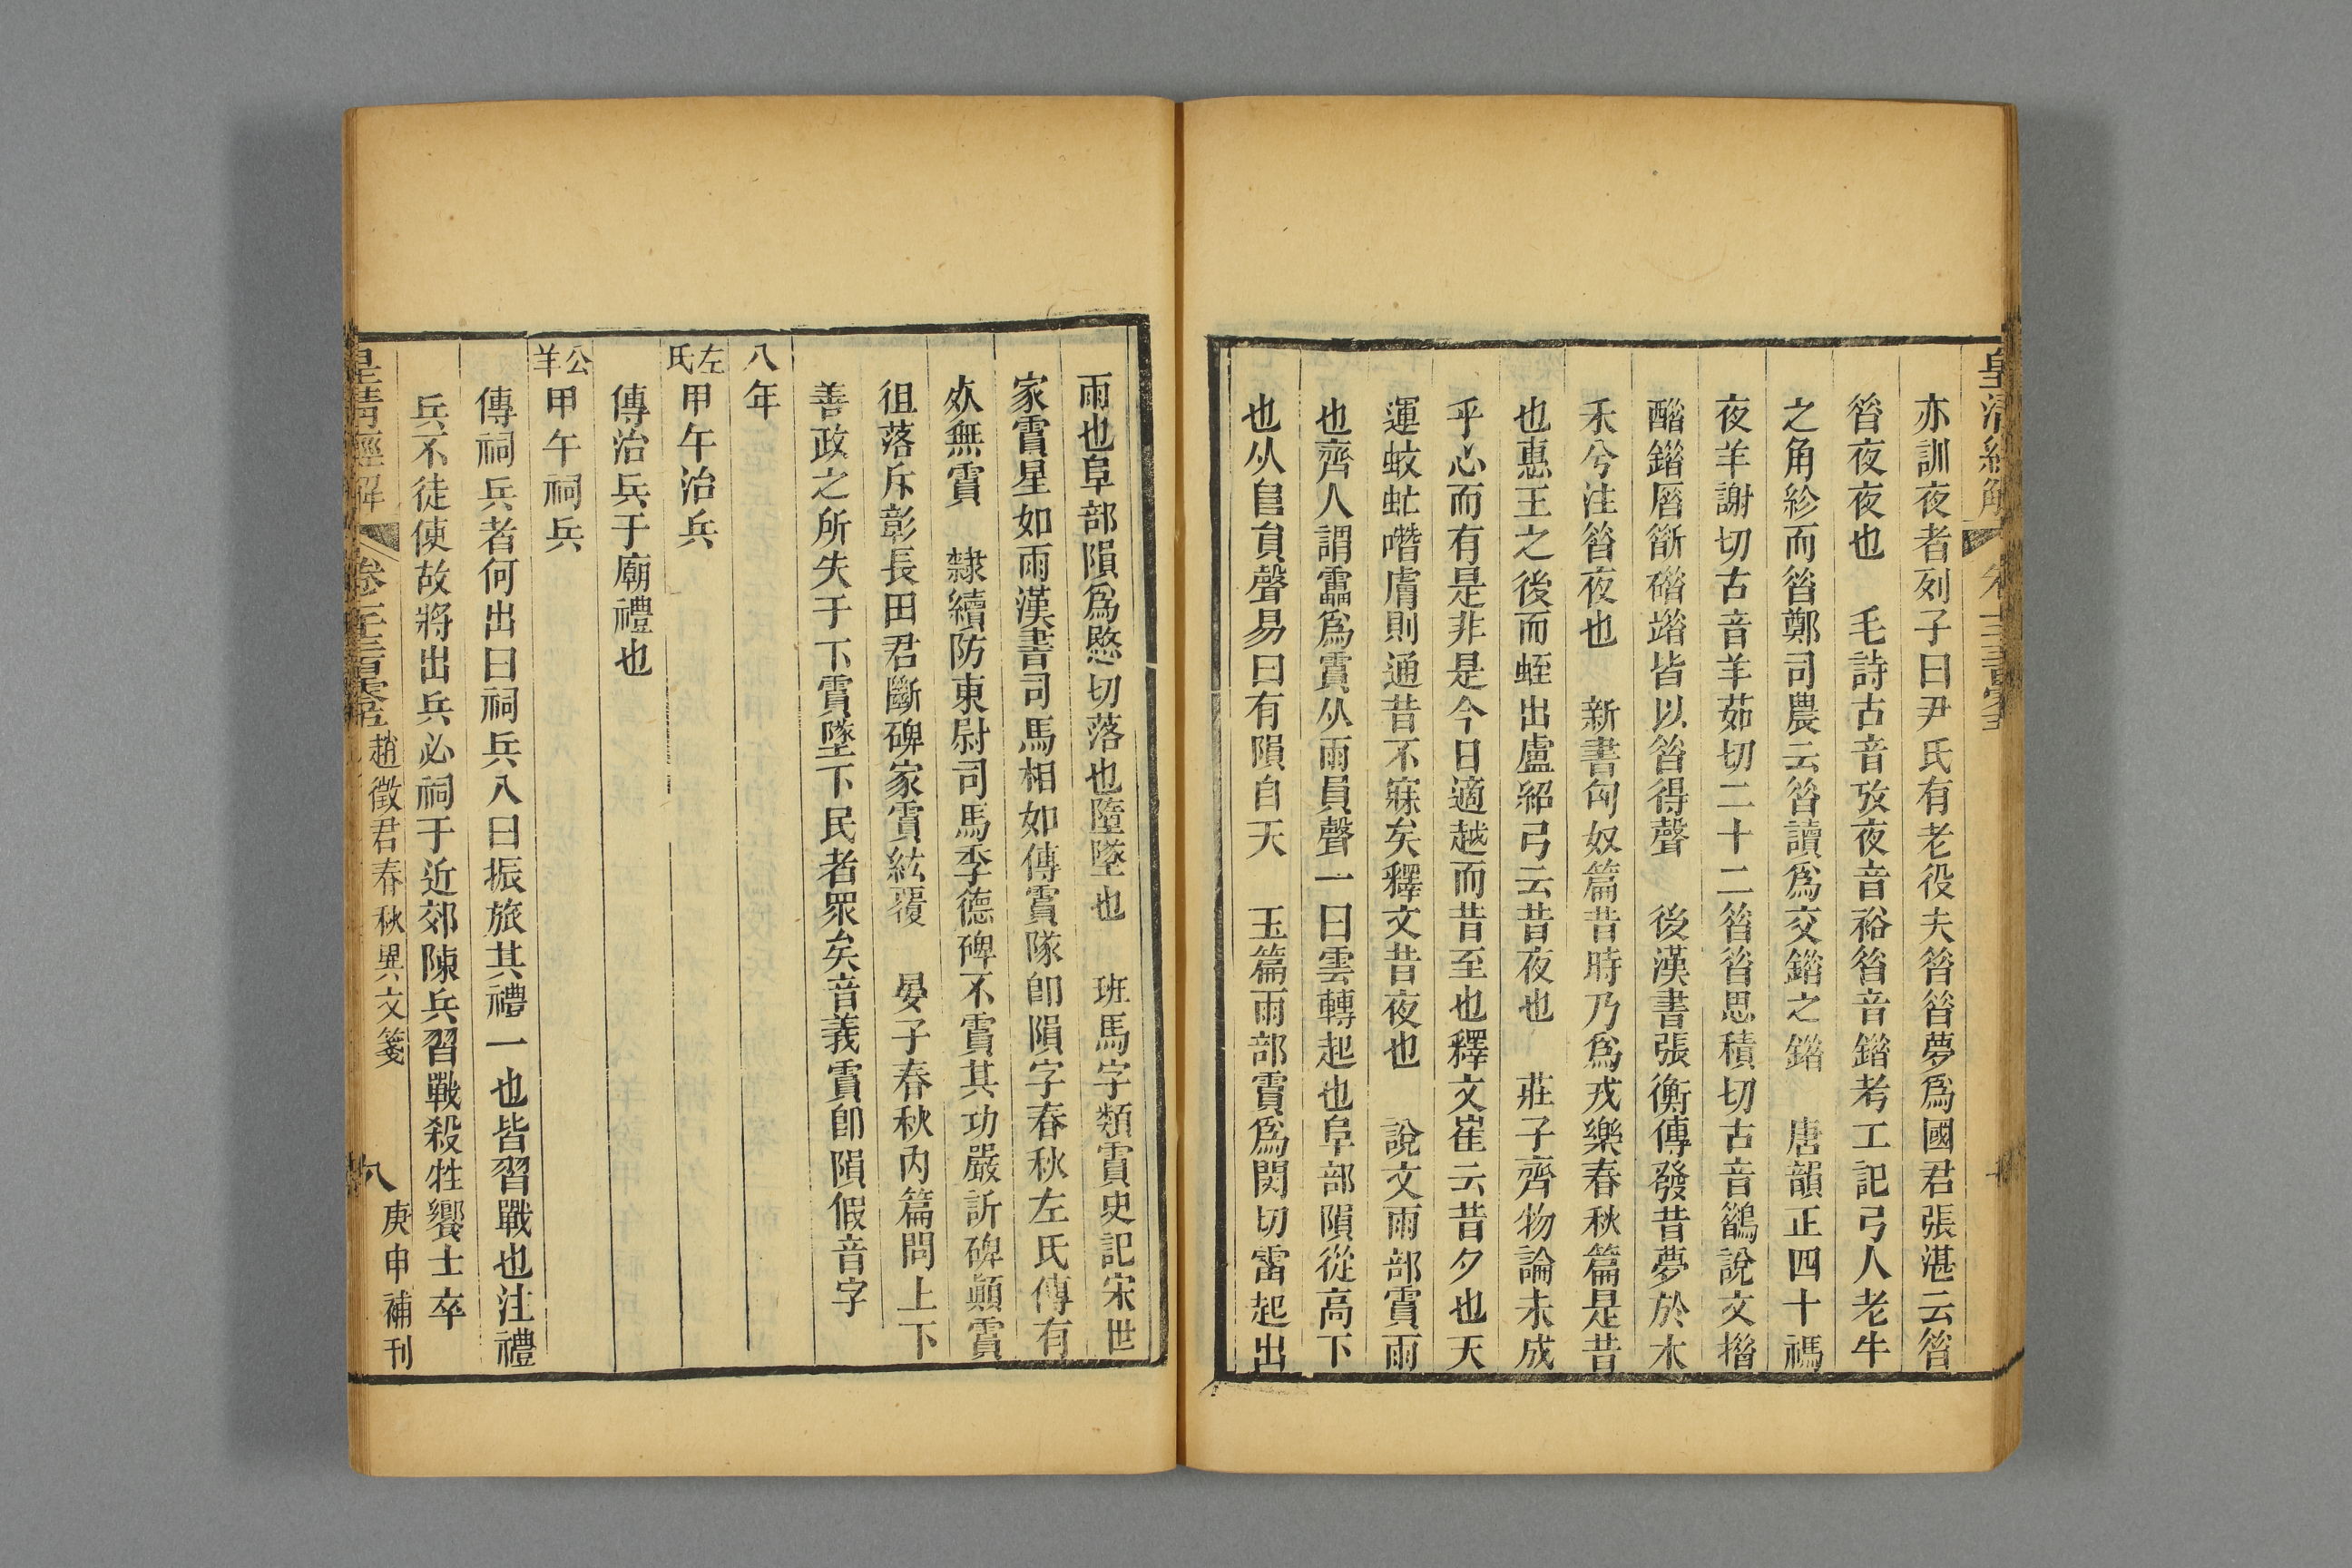 亦訓夜者列子曰尹氏有老役夫昝昝夢爲國君張湛云昝
昝夜夜也　毛詩古音攷夜音裕昝音錯考工記弓人老牛
之角紾而昝鄭司農云昝讀爲交錯之錯　唐韻正四十禡
夜羊謝切古音羊茹切二十二昝昝思積切古音鵲說文
皆以昝得聲　後漢書張衡傳發昔夢於木
禾兮注昝夜也　新書匈奴篇昔時乃爲戎樂春秋篇是昔
也惠王之後而蛭出盧紹弓云昔夜也　莊子齊物論未成
乎心而有是非是今日適越而昔至也釋文崔云昔夕也天
運蚊虻噆膚則通昔不寐矣釋文昔夜也　說文雨部霣雨
也齊人謂靁爲霣从雨員聲一曰雲轉起也阜部隕從高下
也从𨸏員聲易曰有隕自天　玉篇雨部霣爲閔切雷起出
雨也阜部隕爲愍切落也墮墜也　班馬字類霣史記宋世
家霣星如雨漢書司馬相如傳霣隊卽隕字春秋左氏傳有
㱃無霣　隸續防東尉司馬季德碑不霣其功嚴訢碑顚霣
徂落斥彰長田君斷碑家霣紘覆　晏子春秋內篇問上下
善政之所失于下霣墜下民者眾矣音義霣卽隕假音字
八年
左氏甲午治兵
傳治兵于廟禮也
公羊甲午祠兵
傳祠兵者何出曰祠兵入曰振旅其禮一也皆習戰也注禮
兵不徒使故將出兵必祠于近郊陳兵習戰殺牲饗士卒
皇清經解　趙徵君春秋異文箋　八　庚申補刊